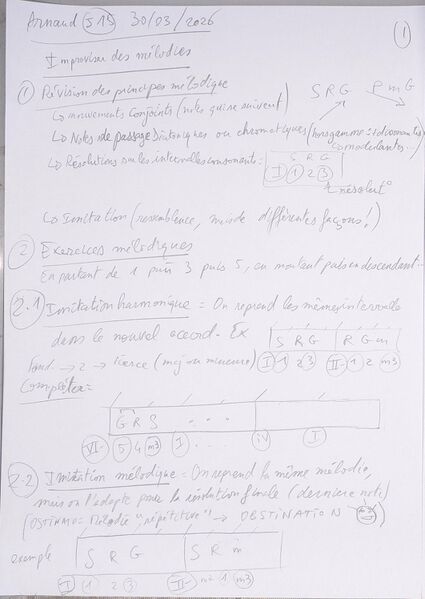 Arnaud J15 30/03/2026 1
Improviser des mélodies
① Révision des principes mélodique
↳ mouvements Conjoints (notes qui se suivent)
S R G P m G
↳ Notes de passage Diatoniques ou chromatiques
↳ Résolutions sur les intervalles consonants =
S R G
I 1 2 3
résolut°
↳ Imitation (ressemblence, mais de différentes façons !)
② Exercices mélodiques
En partant de 1 puis 3 puis 5, en montant puis en descendant...
2.1 Imitation harmonique = On reprend les mêmes intervalle
dans le nouvel accord. Ex
S R G R G m
I 1 2 3 II- 1 2 m3
Fond. → 2 → Tierce (maj ou mineure)
Compléter =
G R S . . .
VI- 5 4 m3 I . . . IV I
2.2 Imitation mélodique = On reprend la même mélodie,
mais on l'adapte pour la résolution finale (dernière note)
(OSTINATO = Mélodie "répétitive" → OBSTINATION
exemple
S R G S R m
I 1 2 3 II- 1 m3